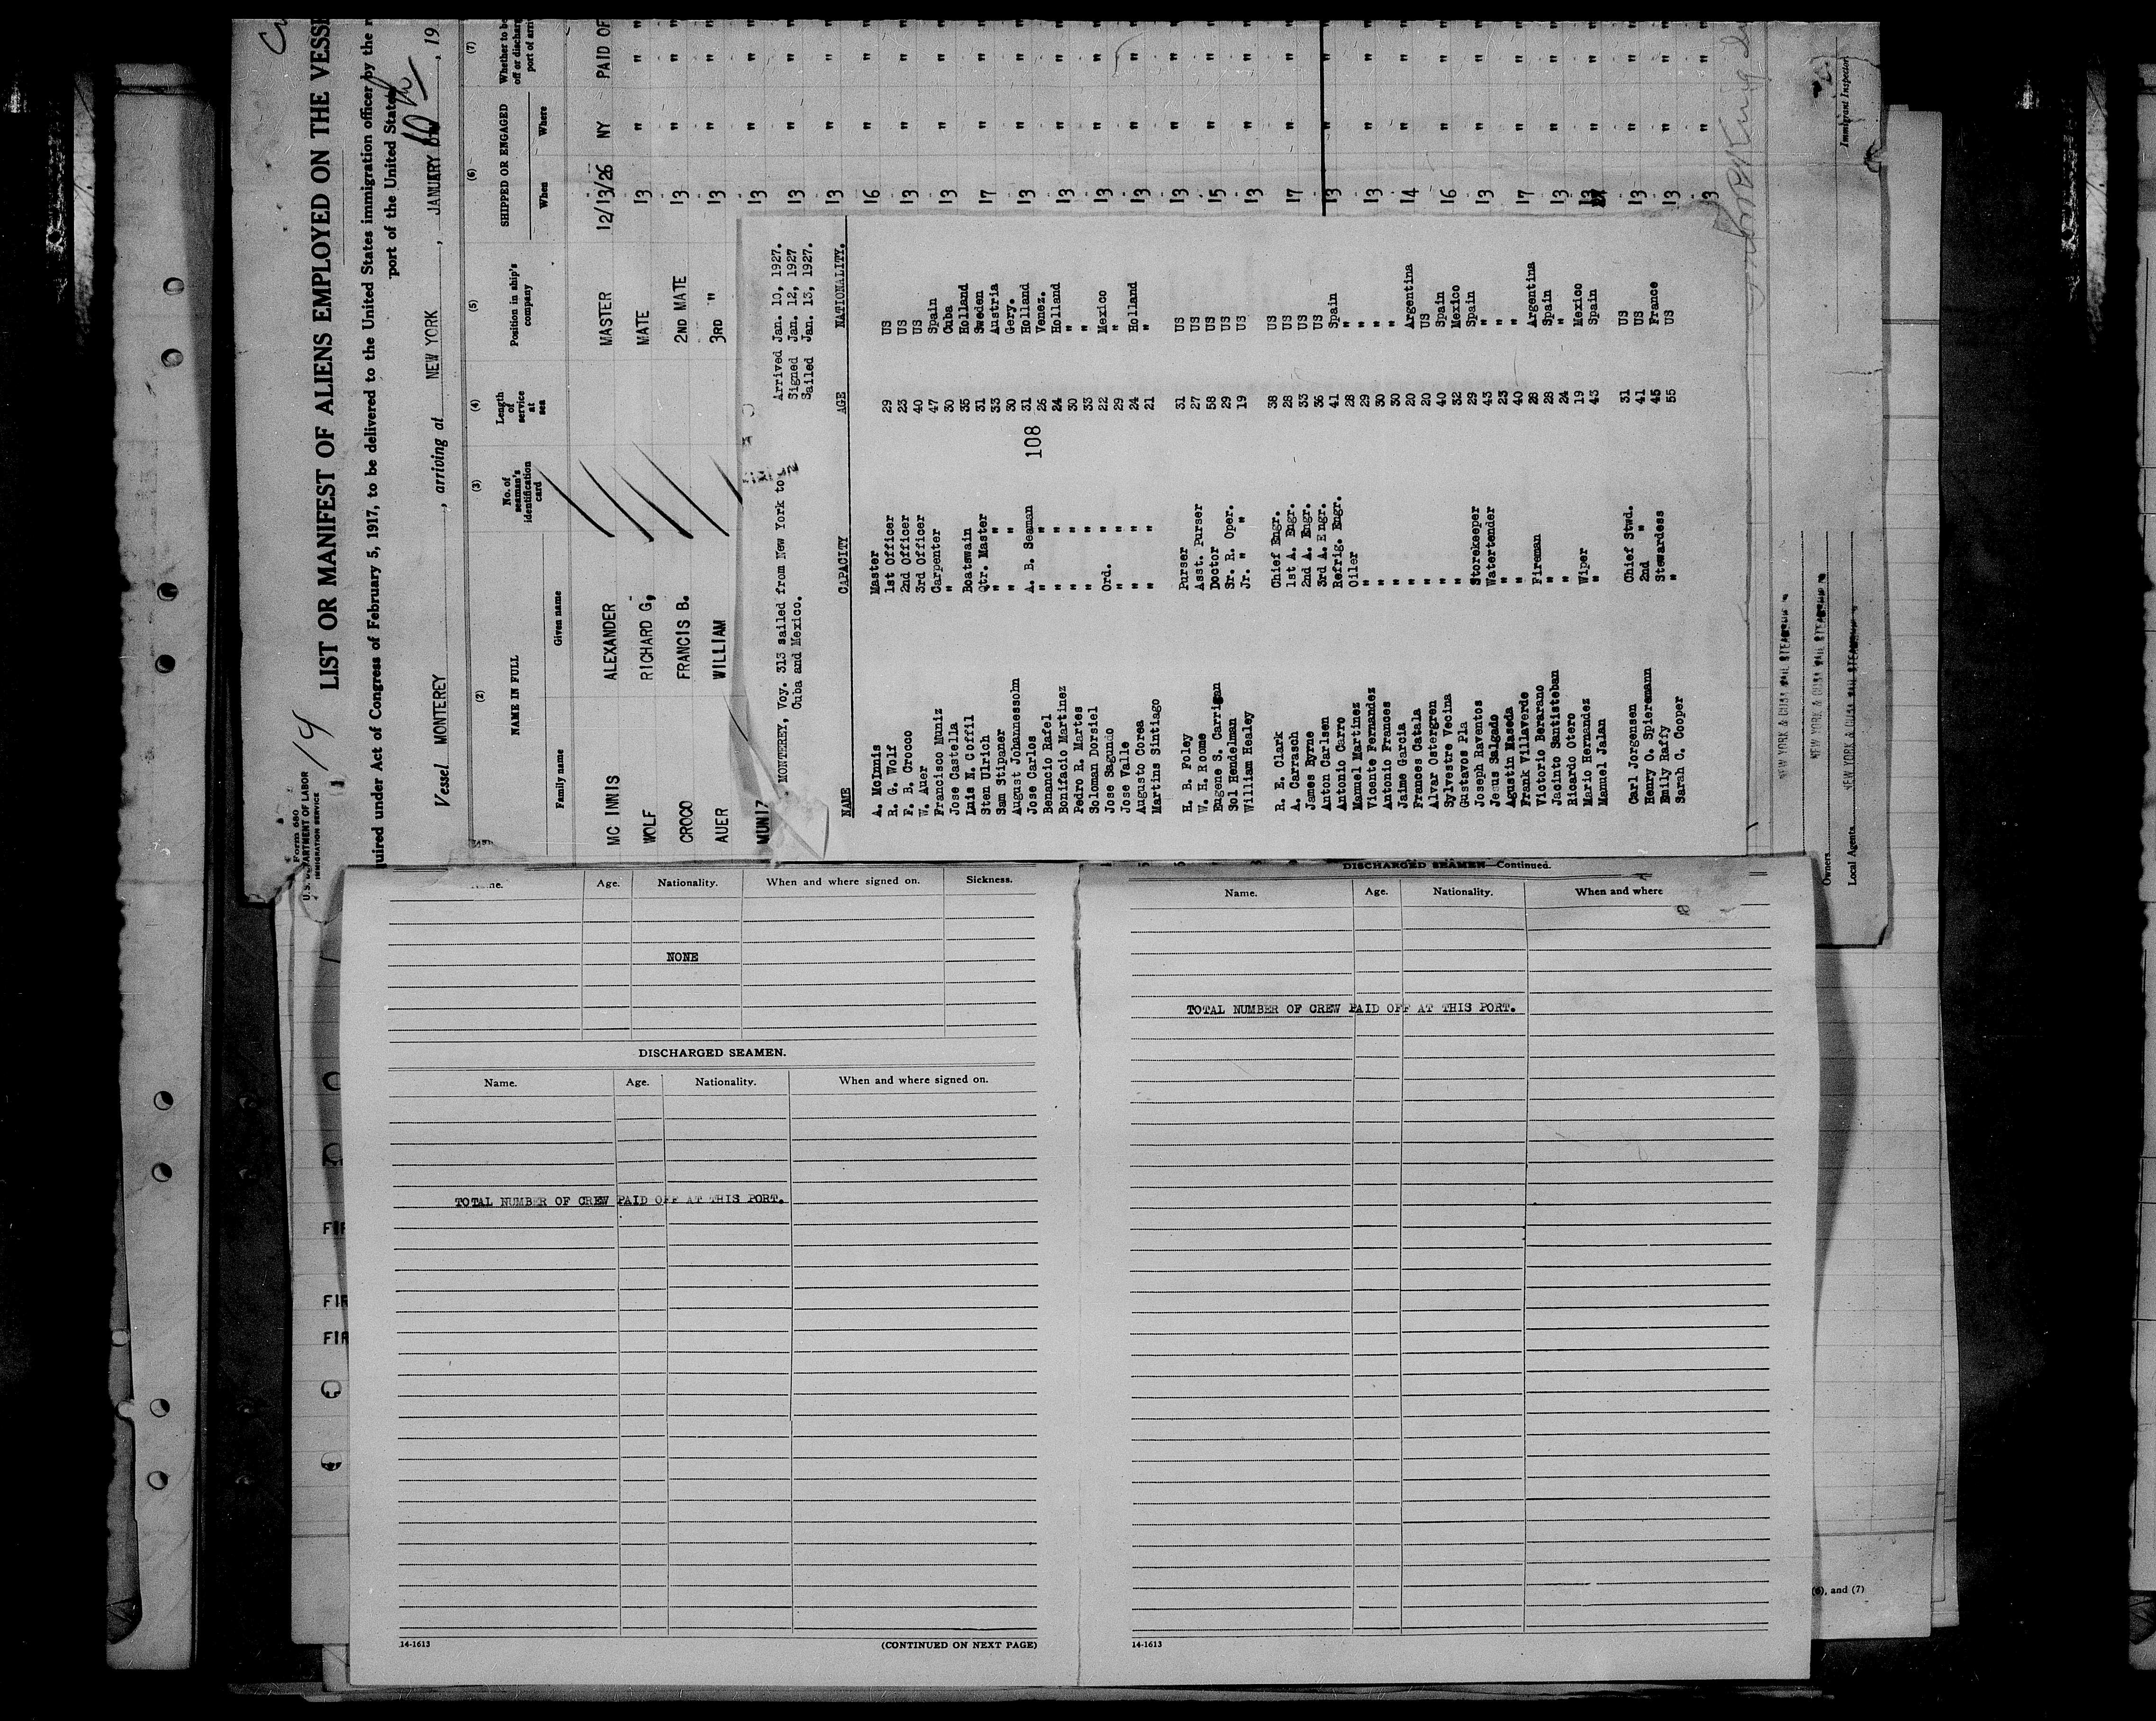 Form 680
U.S. DEPARTMENT OF LABOR
IMMIGRATION SERVICE
14
LIST OR MANIFEST OF ALIENS EMPLOYED ON THE VESSE
quired under Act of Congress of February 5, 1917, to be delivered to the United States immigration officer by the r
port of the United States
Vessel MONTEREY, arriving at NEW YORK, JANUARY 10th, 19
(2) (3) (4) (5) (6) (7)
NAME IN FULL
Family name Given name
No. of seaman's identification card
Length of service at sea
Position in ship's company
SHIPPED OR ENGAGED
When Where
Whether to be off or dischar port of arri
MC INNIS ALEXANDER MASTER 12/13/26 NY PAID OF
WOLF RICHARD G, MATE 13 " "
CROCO FRANCIS B. 2ND MATE 13 " "
AUER WILLIAM 3RD " 13 " "
MUNIZ 13 " "
13 " "
13 " "
16 " "
13 " "
13 " "
17 " "
13 " "
13 " "
13 " "
13 " "
13 " "
15 " "
13 " "
17 " "
13 " "
13 " "
14 " "
16 " "
13 " "
17 " "
13 " "
13 " "
13 " "
13 " "
13 " "
MONTEREY, Voy. 313 sailed from New York to
Cuba and Mexico.
Arrived Jan. 10, 1927.
Signed Jan. 12, 1927
Sailed Jan. 13, 1927.
NAME CAPACITY AGE NATIONALITY.
A. McInnis Master
R. G. Wolf 1st Officer 29 US
F. B. Crocco 2nd Officer 23 US
W. Auer 3rd Officer 40 US
Francisco Muniz Carpenter 47 Spain
Jose Castella " 30 Cuba
Luis N. Coffil Boatswain 35 Holland
Sten Ulrich Qtr. Master 31 Sweden
Sam Stipaner " " 33 Austria
August Johannessohn " " 30 Gery.
Jose Carlos A. B. Seaman 108 31 Holland
Benancio Rafel " " 26 Venez.
Bonifacio Martinez " " 24 Holland
Pedro R. Martes " " 30 "
Soloman Dorsiel " " 33 "
Jose Sagundo Ord. " 22 Mexico
Jose Valle " " 29 "
Augusto Corea " " 24 Holland
Martins Sintiago " " 21 "
H. B. Foley Purser 31 US
W. H. Roome Asst. Purser 27 US
Eugene S. Carrigan Doctor 58 US
Sol Hendelman Sr. R. Oper. 29 US
William Healey Jr. " " 19 US
R. E. Clark Chief Engr. 38 US
A. Carrasch 1st A. Engr. 28 US
James Byrne 2nd A. Engr. 33 US
Anton Carlsen 3rd A. Engr. 36 US
Antonio Carro Refrig. Engr. 41 Spain
Manuel Martinez Oiler 28 "
Vicente Fernandez " 29 "
Antonio Frances " 30 "
Jaime Garcia " 30 "
Frances Catala " 20 Argentina
Alvar Ostorgren " 20 US
Sylvestre Vecina " 40 Spain
Gustavos Pla " 32 Mexico
Joseph Raventos Storekeeper 29 Spain
Jesus Salgado Watertender 43 "
Agustin Maseda " 23 "
Frank Villaverde " 40 "
Victorio Berarano Fireman 28 Argentina
Jacinto Santisteban " 28 Spain
Ricardo Otero " 24 "
Mario Hernandez Wiper 19 Mexico
Manuel Jalan " 43 Spain
Carl Jorgensen Chief Stwd. 31 US
Henry O. Spieremann 2nd " 41 US
Emily Raffy Stewardess 45 France
Sarah C. Cooper " 55 US
NEW YORK & CUBA MAIL STEAMSHIP
Owners NEW YORK & CUBA MAIL STEAMSHIP
Local Agents NEW YORK & CUBA MAIL STEAMSHIP
Immigrant Inspector
Age. Nationality. When and where signed on. Sickness.
NONE
DISCHARGED SEAMEN.
Name. Age. Nationality. When and where signed on.
TOTAL NUMBER OF CREW PAID OFF AT THIS PORT.
14-1613 (CONTINUED ON NEXT PAGE)
DISCHARGED SEAMEN—Continued.
Name. Age. Nationality. When and where
TOTAL NUMBER OF CREW PAID OFF AT THIS PORT.
14-1613
FIR
FIR
FIR
(6), and (7)